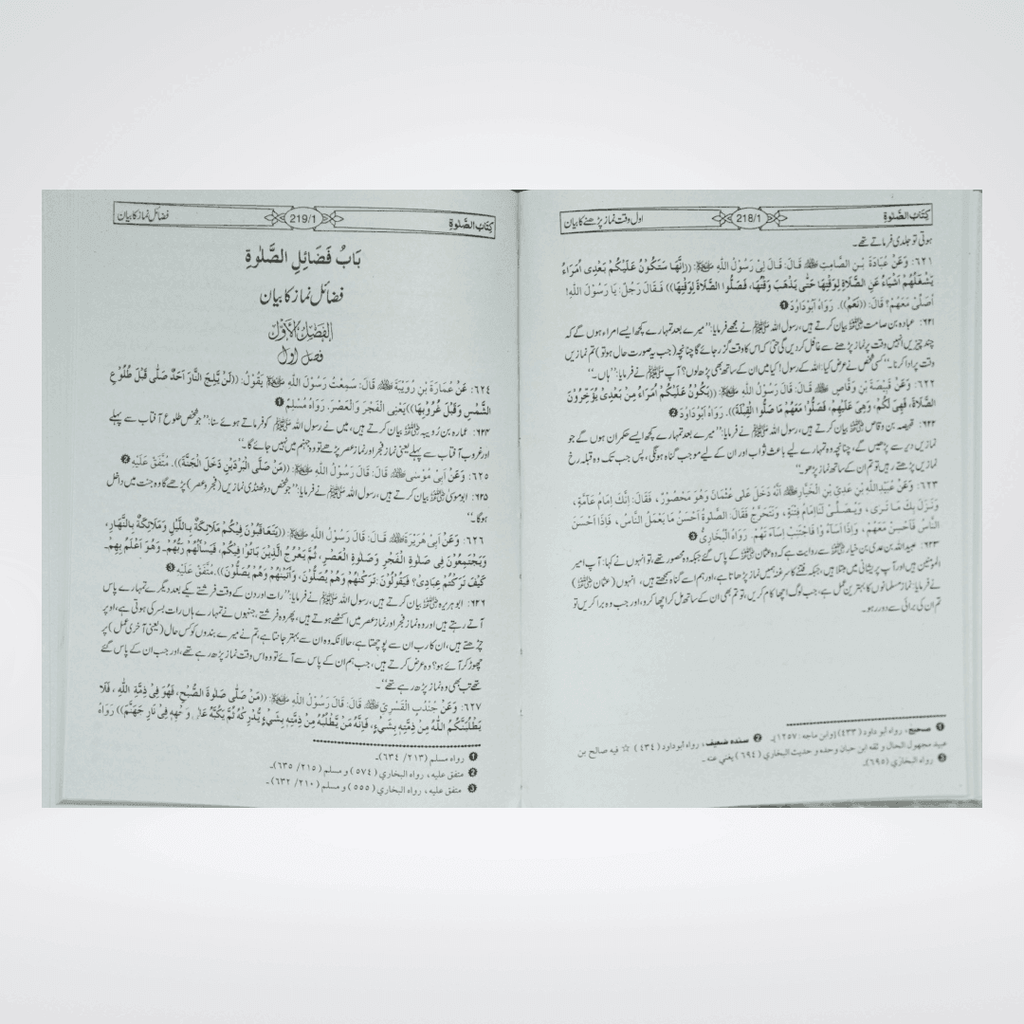 كِتَابُ الصَّلوٰةِ
218/1
اول وقت نماز پڑھنے کا بیان
ہوتی تو جلدی فرماتے تھے۔
٦٢١: وَعَنْ عُبَادَةَ بْنِ الصَّامِتِ ﷺ قَالَ: قَالَ لِيْ رَسُوْلُ اللهِ ﷺ: ((إِنَّهَا سَتَكُوْنُ عَلَيْكُمْ بَعْدِى أُمَرَاءُ
يَشْغَلُهُمْ أَشْيَاءُ عَنِ الصَّلَاةِ لِوَقْتِهَا حَتّٰى يَذْهَبَ وَقْتُهَا، فَصَلُّوا الصَّلَاةَ لِوَقْتِهَا)) فَقَالَ رَجُلٌ: يَا رَسُوْلَ اللهِ!
أُصَلِّىْ مَعَهُمْ؟ قَالَ: ((نَعَمْ)). رَوَاهُ أَبُوْدَاوُدَ ❶
۶۲۱: عبادہ بن صامت بیان کرتے ہیں، رسول اللہ ﷺ نے مجھے فرمایا: ’’میرے بعد تمہارے کچھ ایسے امراء ہوں گے کہ
چند چیزیں انہیں وقت پر نماز پڑھنے سے غافل کر دیں گی حتی کہ اس کا وقت گزر جائے گا چنانچہ (جب یہ صورت حال ہو تو) تم نمازیں
وقت پر ادا کرنا۔‘‘ کسی شخص نے عرض کیا: اللہ کے رسول! کیا میں ان کے ساتھ بھی پڑھ لوں؟ آپ ﷺ نے فرمایا: ’’ہاں۔‘‘
٦٢٢: وَعَنْ قَبِيْصَةَ بْنِ وَقَّاصٍ قَالَ: قَالَ رَسُوْلُ اللهِ ﷺ: ((يَكُوْنُ عَلَيْكُمْ أُمَرَاءُ مِنْ بَعْدِىْ يُؤَخِّرُوْنَ
الصَّلَاةَ، فَهِىَ لَكُمْ، وَهِىَ عَلَيْهِمْ، فَصَلُّوْا مَعَهُمْ مَا صَلُّوا الْقِبْلَةَ)). رَوَاهُ أَبُوْدَاوُدَ ❷
۶۲۲: قبیصہ بن وقاص بیان کرتے ہیں، رسول اللہ ﷺ نے فرمایا: ’’میرے بعد تمہارے کچھ ایسے حکمران ہوں گے جو
نمازیں دیر سے پڑھیں گے، چنانچہ وہ تمہارے لیے باعث ثواب اور ان کے لیے موجب گناہ ہوگی، پس جب تک وہ قبلہ رخ
نمازیں پڑھتے رہیں تو تم ان کے ساتھ نماز پڑھو۔‘‘
٦٢٣: وَعَنْ عُبَيْدِاللهِ بْنِ عَدِيِّ بْنِ الْخِيَارِ أَنَّهُ دَخَلَ عَلٰى عُثْمَانَ وَهُوَ مَحْصُوْرٌ، فَقَالَ: إِنَّكَ إِمَامُ عَامَّةٍ،
وَنَزَلَ بِكَ مَا تَرٰى، وَيُصَلِّىْ لَنَا إِمَامُ فِتْنَةٍ، وَنَتَحَرَّجُ فَقَالَ: الصَّلٰوةُ أَحْسَنُ مَا يَعْمَلُ النَّاسُ، فَإِذَا أَحْسَنَ
النَّاسُ فَأَحْسِنْ مَعَهُمْ، وَإِذَا أَسَاءُوْا فَاجْتَنِبْ إِسَاءَتَهُمْ. رَوَاهُ الْبُخَارِيُّ ❸
۶۲۳: عبیداللہ بن عدی بن خیار سے روایت ہے کہ وہ عثمان کے پاس گئے جبکہ وہ محصور تھے، تو انہوں نے کہا: آپ امیر
المومنین ہیں اور آپ پر پریشانی میں مبتلا ہیں، جبکہ فتنے کا سرغنہ ہمیں نماز پڑھاتا ہے، اور ہم اسے گناہ سمجھتے ہیں، انہوں (عثمان)
نے فرمایا: نماز مسلمانوں کا بہترین عمل ہے، جب لوگ اچھا کام کریں، تو تم بھی ان کے ساتھ مل کر اچھا کرو، اور جب وہ برا کریں تو
تم ان کی برائی سے دور رہو۔
❶ صحيح، رواه أبو داود (٤٣٣) [وابن ماجه: ١٢٥٧]. ❷ سنده ضعيف، رواه أبوداود (٤٣٤) ☆ فيه صالح بن
عبيد مجهول الحال و ثقه ابن حبان وحده و حديث البخاري (٦٩٤) يغني عنه۔
❸ رواه البخاري (٦٩٥).
كِتَابُ الصَّلوٰةِ
219/1
فضائل نماز کا بیان
بَابُ فَضَائِلِ الصَّلٰوةِ
فضائل نماز کا بیان
الفَصْلُ الْأَوَّلُ
فصل اول
٦٢٤: عَنْ عُمَارَةَ بْنِ رُوَيْبَةَ قَالَ: سَمِعْتُ رَسُوْلَ اللهِ ﷺ يَقُوْلُ: ((لَنْ يَّلِجَ النَّارَ أَحَدٌ صَلّٰى قَبْلَ طُلُوْعِ
الشَّمْسِ وَقَبْلَ غُرُوْبِهَا)) يَعْنِى الْفَجْرَ وَالْعَصْرَ. رَوَاهُ مُسْلِمٌ ❶
۶۲۴: عمارہ بن رویبہ بیان کرتے ہیں، میں نے رسول اللہ ﷺ کو فرماتے ہوئے سنا: ’’جو شخص طلوع آفتاب سے پہلے
اور غروب آفتاب سے پہلے یعنی نماز فجر اور نماز عصر پڑھے تو وہ جہنم میں نہیں جائے گا۔‘‘
٦٢٥: وَعَنْ أَبِىْ مُوْسٰى قَالَ: قَالَ رَسُوْلُ اللهِ ﷺ: ((مَنْ صَلَّى الْبَرْدَيْنِ دَخَلَ الْجَنَّةَ)). مُتَّفَقٌ عَلَيْهِ ❷
۶۲۵: ابوموسیٰ بیان کرتے ہیں، رسول اللہ ﷺ نے فرمایا: ’’جو شخص دو ٹھنڈی نمازیں (فجر و عصر) پڑھے گا وہ جنت میں داخل
ہوگا۔‘‘
٦٢٦: وَعَنْ أَبِىْ هُرَيْرَةَ قَالَ: قَالَ رَسُوْلُ اللهِ ﷺ: ((يَتَعَاقَبُوْنَ فِيْكُمْ مَلَائِكَةٌ بِاللَّيْلِ وَمَلَائِكَةٌ بِالنَّهَارِ،
وَيَجْتَمِعُوْنَ فِى صَلٰوةِ الْفَجْرِ وَصَلٰوةِ الْعَصْرِ، ثُمَّ يَعْرُجُ الَّذِيْنَ بَاتُوْا فِيْكُمْ، فَيَسْأَلُهُمْ رَبُّهُمْ۔ وَهُوَ أَعْلَمُ بِهِمْ۔
كَيْفَ تَرَكْتُمْ عِبَادِىْ؟ فَيَقُوْلُوْنَ: تَرَكْنَاهُمْ وَهُمْ يُصَلُّوْنَ، وَأَتَيْنَاهُمْ وَهُمْ يُصَلُّوْنَ)). مُتَّفَقٌ عَلَيْهِ ❸
۶۲۶: ابو ہریرہ بیان کرتے ہیں، رسول اللہ ﷺ نے فرمایا: ’’رات اور دن کے وقت فرشتے یکے بعد دیگرے تمہارے پاس
آتے رہتے ہیں اور وہ نماز فجر اور نماز عصر میں اکٹھے ہوتے ہیں، پھر وہ فرشتے، جنہوں نے تمہارے ہاں رات بسر کی ہوتی ہے، اوپر
چڑھتے ہیں، ان کا رب ان سے پوچھتا ہے، حالانکہ وہ ان سے بہتر جانتا ہے، تم نے میرے بندوں کو کس حال (یعنی آخری عمل) پر
چھوڑ کر آئے ہو؟ وہ عرض کرتے ہیں، جب ہم ان کے پاس سے آئے تو وہ اس وقت نماز پڑھ رہے تھے، اور جب ان کے پاس گئے
تھے تب بھی وہ نماز پڑھ رہے تھے‘‘۔
٦٢٧: وَعَنْ جُنْدُبٍ الْقَسْرِيِّ قَالَ: قَالَ رَسُوْلُ اللهِ ﷺ: ((مَنْ صَلّٰى صَلٰوةَ الصُّبْحِ، فَهُوَ فِىْ ذِمَّةِ اللهِ، فَلَا
يَطْلُبَنَّكُمُ اللهُ مِنْ ذِمَّتِهٖ بِشَىْءٍ، فَإِنَّهُ مَنْ يَّطْلُبْهُ مِنْ ذِمَّتِهٖ بِشَىْءٍ يُّدْرِكْهُ ثُمَّ يَكُبُّهُ عَلٰى وَجْهِهٖ فِىْ نَارِ جَهَنَّمَ)) رَوَاهُ
❶ رواه مسلم (٢١٣/ ٦٣٤)۔
❷ متفق عليه، رواه البخاري (٥٧٤) و مسلم (٢١٥/ ٦٣٥)۔
❸ متفق عليه، رواه البخاري (٥٥٥) و مسلم (٢١٠/ ٦٣٢)۔